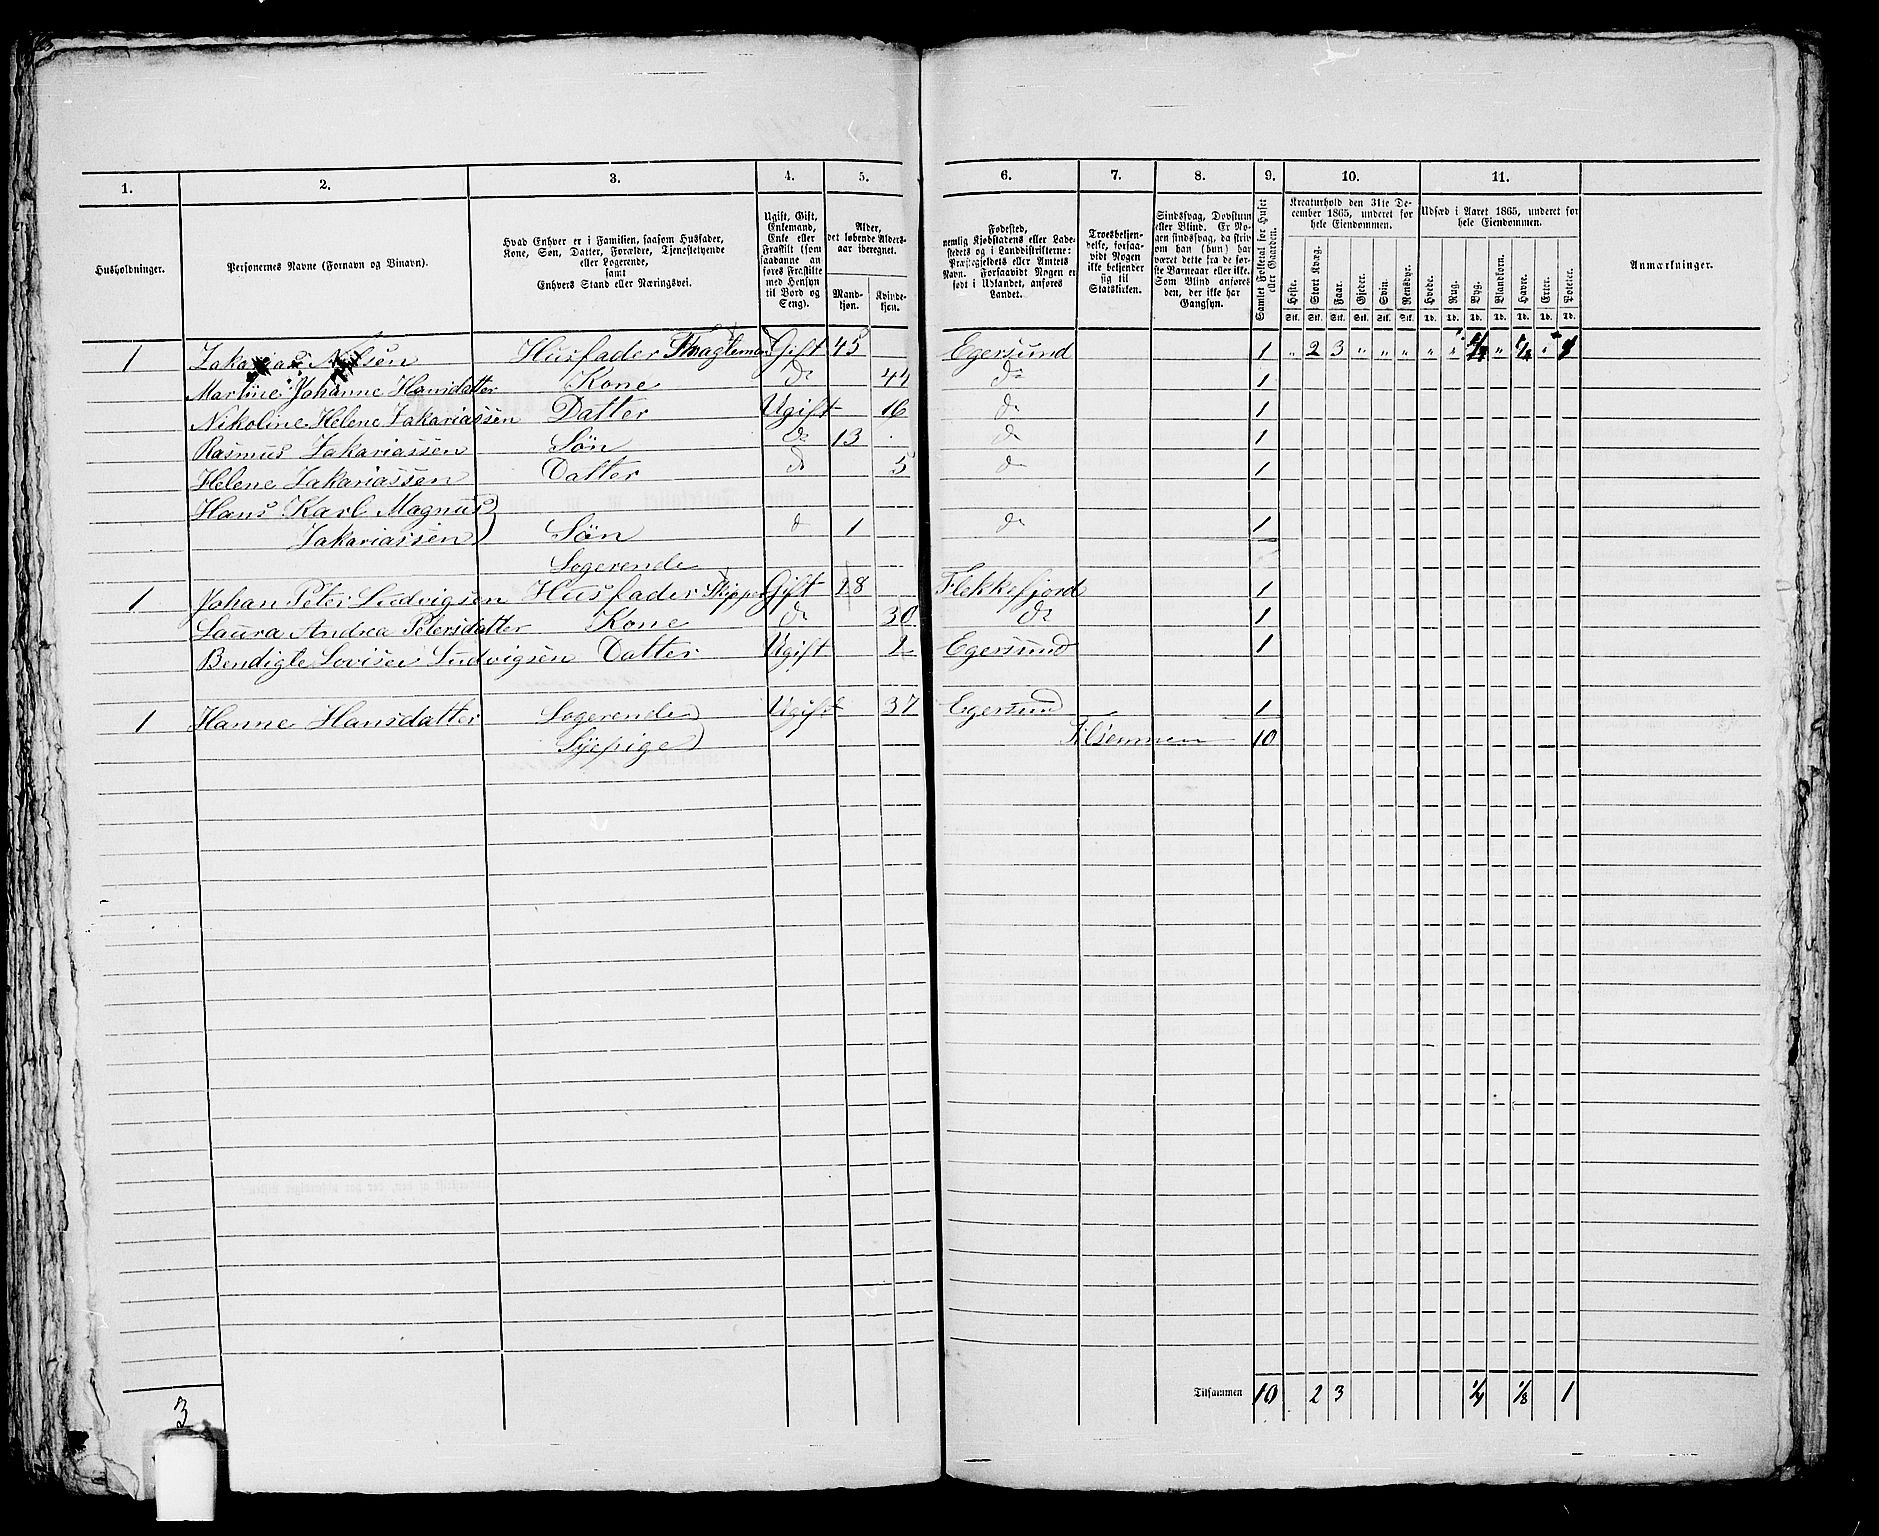 1. 2. 3. 4. 5. 6. 7. 8. 9. 10. 11.
Husholdninger.
Personernes Navne (Fornavn og Tilnavn).
Hvad Enhver er i Familien, saasom Husfader, Kone, Søn, Datter, Forældre, Tjenestetyende eller Logerende, samt Enhvers Stand eller Næringsvei.
Ugift, Gift, Enkemand, Enke eller Fraskilt (som saadanne anføres Fraskilte med Hensyn til Bord og Seng).
Alder, det løbende Aldersaar iberegnet.
Mandkjøn. Kvindekjøn.
Fødested, nemlig Kjøbstadens eller Ladestedets og i Landdistrikterne: Præstegjeldets eller Amtets Navn. Forsaavidt Nogen er født i Udlandet, anføres Landet.
Troesbekjendelse, forsaavidt Nogen ikke bekjender sig til Statskirken.
Sindssvag, Døvstum eller Blind. Er Nogen sindssvag, da skrives om han (hun) har været dette fra de første Barneaar eller ikke. Som Blind anføres den, der ikke har Gangsyn.
Samlet Folketal for Huset eller Gaarden.
Kreaturhold den 31te December 1865, underet for hele Eiendommen.
Heste. Stort Kvæg. Faar. Gjeder. Svin. Rensdyr.
Stk. Stk. Stk. Stk. Stk. Stk.
Udsæd i Aaret 1865, underet for hele Eiendommen.
Hvede. Rug. Byg. Blandkorn. Havre. Erter. Poteter.
Td. Td. Td. Td. Td. Td. Td.
Anmærkninger.
1 Zakarias Nilsen Husfader Gift 45 Egersund 1 " 2 3 " " " " " 1/4 " 1/8 " 1
Martine Johanne Hansdatter Kone do 44 do 1
Nikoline Helene Zakariassen Datter Ugift 16 do 1
Rasmus Zakariassen Søn do 13 do 1
Helene Zakariassen Datter do 5 do 1
Hans Karl Magnus
Zakariassen Søn do 1 do 1
Logerende
1 Johan Peter Ludvigsen Husfader Skipper Gift 28 Flekkefjord 1
Laura Andrea Petersdatter Kone do 30 do 1
Bendigte Lovise Ludvigsen Datter Ugift 2 Egersund 1
1 Hanne Hansdatter Logerende Ugift 37 Egersund 1
Syepige Tilsammen 10
3 Tilsammen 10 2 3 1/4 1/8 1